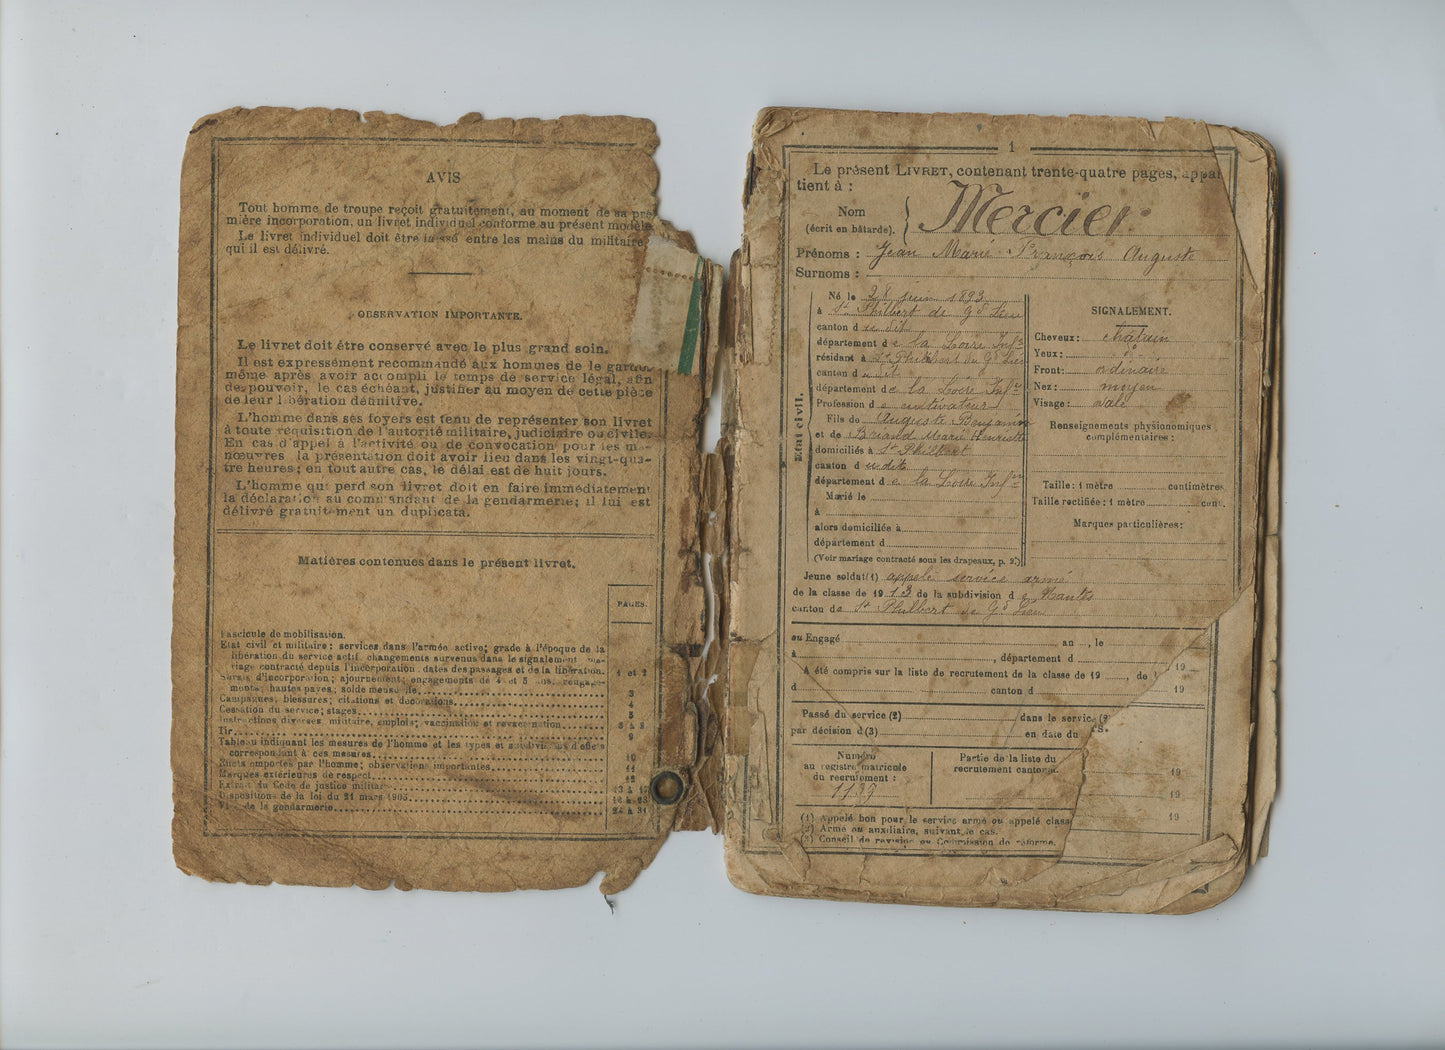 AVIS
Tout homme de troupe reçoit gratuitement, au moment de sa pre
mière incorporation, un livret individuel conforme au présent modèle.
Le livret individuel doit être laissé entre les mains du militaire
qui il est délivré.
OBSERVATION IMPORTANTE.
Le livret doit être conservé avec le plus grand soin.
Il est expressément recommandé aux hommes de le garder
même après avoir accompli le temps de service légal, afin
de pouvoir, le cas échéant, justifier au moyen de cette pièce
de leur libération définitive.
L'homme dans ses foyers est tenu de représenter son livret
à toute réquisition de l'autorité militaire, judiciaire ou civile.
En cas d'appel à l'activité ou de convocation pour les ma-
nœuvres la présentation doit avoir lieu dans les vingt-qua-
tre heures; en tout autre cas, le délai est de huit jours.
L'homme qui perd son livret doit en faire immédiatement
la déclaration au commandant de la gendarmerie; il lui est
délivré gratuitement un duplicata.
Matières contenues dans le présent livret.
PAGES.
Fascicule de mobilisation.
Etat civil et militaire: services dans l'armée active; grade à l'époque de la
libération du service actif, changements survenus dans le signalement ma-
riage contracté depuis l'incorporation, dates des passages et de la libération. 1 et 2
Sursis d'incorporation; ajournement; engagements de 4 et 5 ans, rengage-
ments; hautes payes; solde mensuelle. 3
Campagnes, blessures; citations et décorations. 4
Cessation du service; stages. 5
Instructions diverses, militaire, emplois; vaccination et revaccination 6 à 8
Tir. 9
Tableau indiquant les mesures de l'homme et les types et subdivisions d'effets
correspondant à ces mesures. 10
Effets emportés par l'homme; observations importantes. 11
Marques extérieures de respect. 12
Extrait du Code de justice militaire 13 à 17
Dispositions de la loi du 21 mars 1905.
Visa de la gendarmerie.
1
Le présent LIVRET, contenant trente-quatre pages, appar
tient à :
Nom
(écrit en bâtarde). Mercier
Prénoms : Jean Marie François Auguste
Surnoms :
Etat civil.
Né le 28 juin 1893
à St Philbert de Gd Lieu
canton d u dit
département d e la Loire Infre
résidant à St Philbert du Gd Lieu
canton d u dit
département d e la Loire Infre
Profession d e cultivateur
Fils de Auguste Benjamin
et de Briand Marie Henriette
domiciliés à St Philbert
canton d u dit
département d e la Loire Infre
Marié le
à
alors domiciliée à
département d
(Voir mariage contracté sous les drapeaux, p. 2.)
SIGNALEMENT.
Cheveux: châtain
Yeux: do
Front: ordinaire
Nez: moyen
Visage: ovale
Renseignements physionomiques
complémentaires :
Taille: 1 mètre centimètres
Taille rectifiée: 1 mètre cent.
Marques particulières:
Jeune soldat(1) appelé service armé
de la classe de 1913 de la subdivision d e Nantes
canton de St Philbert de Gd Lieu
ou Engagé an , le
à , département d 19
A été compris sur la liste de recrutement de la classe de 19 , de
d canton d 19
Passé du service (2) dans le service (2)
par décision d(3) en date du
Numéro
au registre matricule
du recrutement :
1137
Partie de la liste du
recrutement cantonal.
rs.
19
19
19
(1) Appelé bon pour le service armé ou appelé class
(2) Armé ou auxiliaire, suivant le cas.
(3) Conseil de revision ou Commission de réforme.